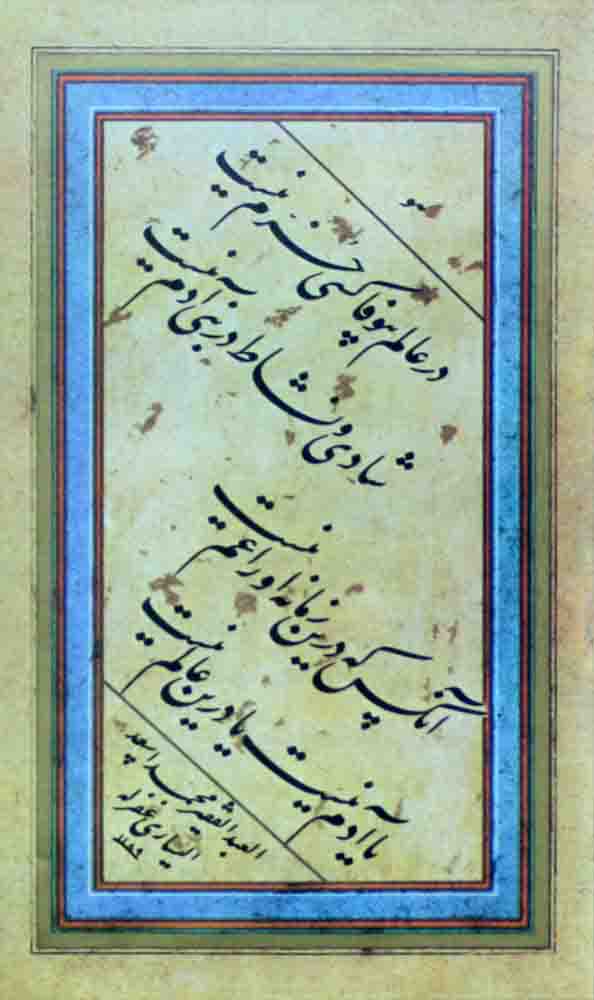 هو
در عالم بیوفا کسی خرم نیست
شادی و نشاط در بنی آدم نیست
آنکس که درین زمانه او را غم نیست
یا آدم نیست یا درین عالم نیست
العبد الفقیر محمد اسعد
الیساری غفر له